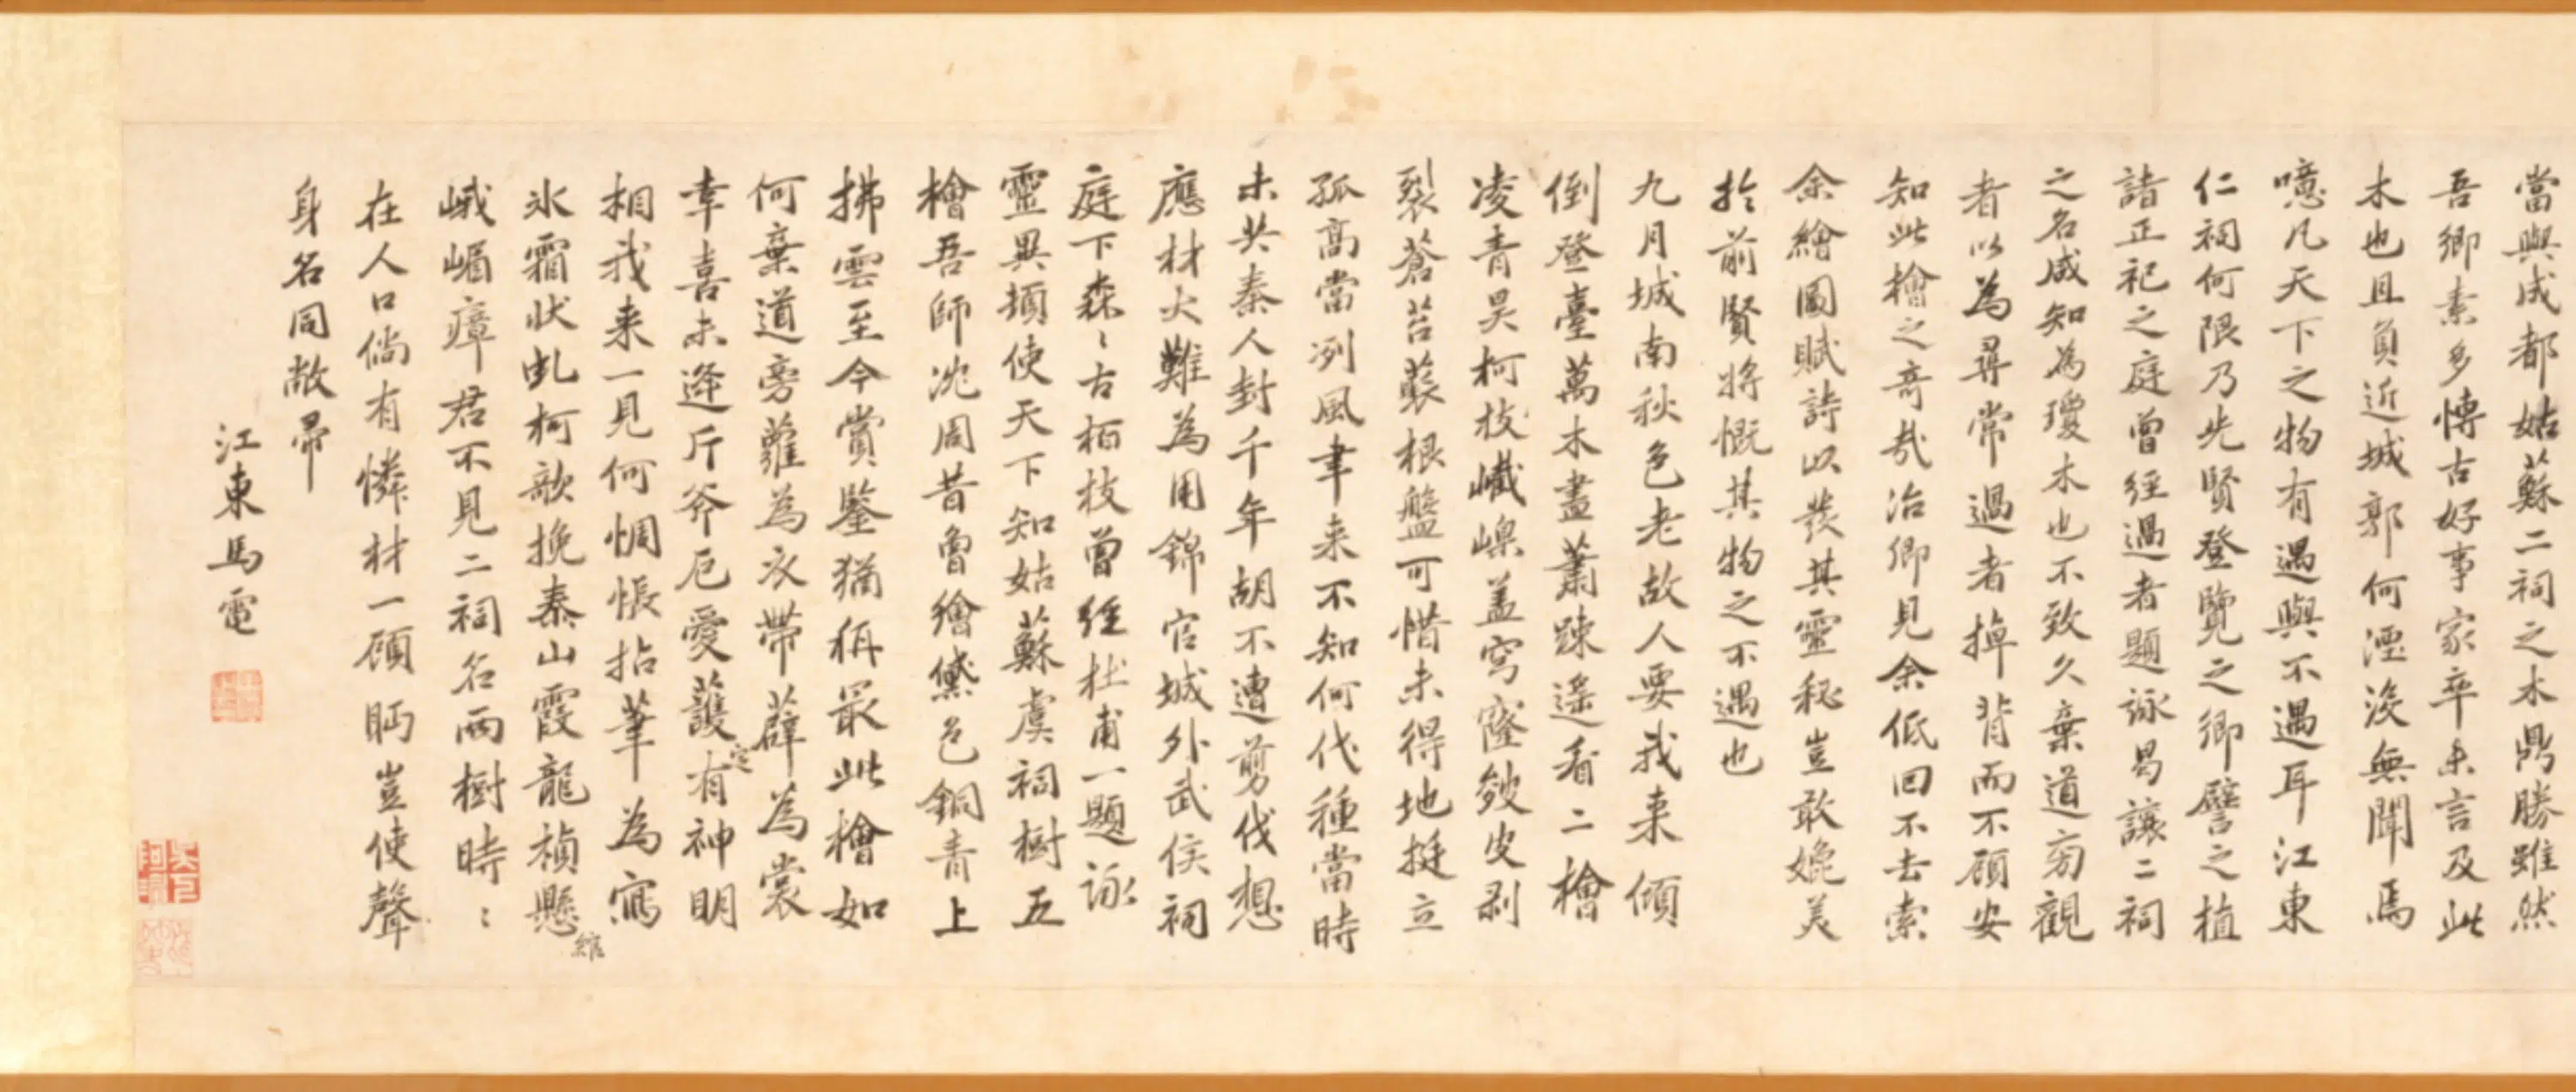 當與成都姑蘇二祠之木鼎勝雖然
吾鄉素多博古好事家卒未言及此
木也且負近城郭何湮沒無聞焉
噫凡天下之物有遇與不遇耳江東
仁祠何限乃先賢登覽之鄉譬之植
諸正祀之庭曾經過者題詠曷讓二祠
之名咸知為瓊木也不致久棄道旁觀
者以為尋常過者掉背而不顧安
知此檜之奇哉治卿見余低回不去索
余繪圖賦詩以發其靈秘豈敢媲美
於前賢將慨其物之不遇也
九月城南秋色老故人要我来傾
倒登臺萬木盡蕭踈遥看二檜
凌青昊柯枝巘嵲盖穹窿皴皮剥
裂蒼苔蘂根盤可惜未得地挺立
孤高當冽風聿来不知何代種當時
未共秦人封千年胡不遭剪伐想
應材大難為用錦官城外武侯祠
庭下森〻古栢枝曾經杜甫一題詠
靈異頓使天下知姑蘇虞祠樹五
檜吾師沈周昔曾繪黛色銅青上
拂雲至今賞鑒猶稱最此檜如
何棄道旁蘿為衣帶薜為裳
幸喜未逢斤斧厄愛護有神明
定
相我来一見何惆悵拈筆為寫
氷霜狀虬柯欹挽泰山霞龍楨懸
綰
峨嵋瘴君不見二祠名両樹時〻
在人口倘有憐材一顧眄豈使聲
身名同敝帚
江東馬電